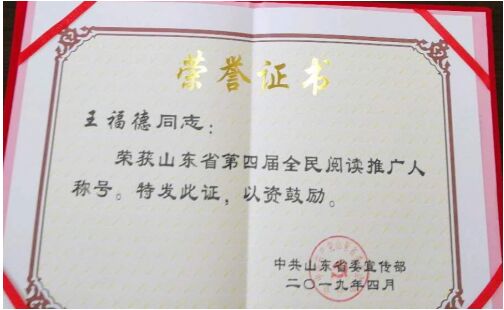 荣誉证书
王福德同志：
荣获山东省第四届全民阅读推广人
称号。特发此证，以资鼓励。
中共山东省委宣传部
二〇一九年四月